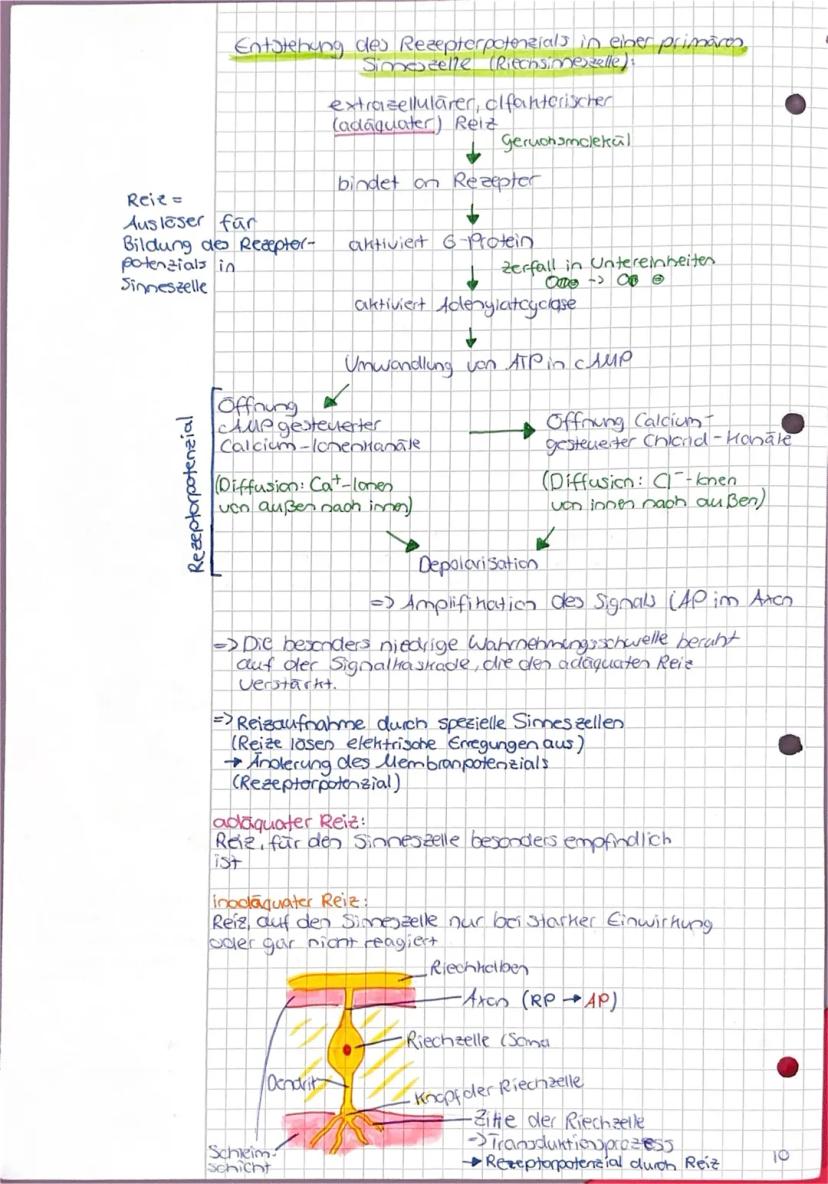 Entstehung des Rezeptorpotenzials in einer primären
Sinneszelle (Riechsinneszelle):
extrazellulärer, olfaktorischer
(adäquater) Reiz
Geruchsmolekül
bindet an Rezeptor
Reiz =
Auslöser für
Bildung des Rezeptor-
potenzials in
Sinneszelle
aktiviert G-Protein
zerfall in Untereinheiten
aktiviert Adenylatcyclase
Umwandlung von ATP in cAMP
Rezeptorpotenzial
Öffnung
cAMP gesteuerter
Calcium-Ionenkanäle
Öffnung Calcium-
gesteuerter Chlorid-Kanäle
(Diffusion: Ca⁺-Ionen
von außen nach innen)
(Diffusion: Cl⁻-Ionen
von innen nach außen)
Depolarisation
=> Amplifikation des Signals (AP im Axon
=> Die besonders niedrige Wahrnehmungsschwelle beruht
auf der Signalkaskade, die den adäquaten Reiz
verstärkt.
=> Reizaufnahme durch spezielle Sinneszellen
(Reize lösen elektrische Erregungen aus)
→ Änderung des Membranpotenzials
(Rezeptorpotenzial)
adäquater Reiz:
Reiz, für den Sinneszelle besonders empfindlich
ist
inadäquater Reiz:
Reiz, auf den Sinneszelle nur bei starker Einwirkung
oder gar nicht reagiert
Riechkolben
Axon (RP → AP)
Riechzelle (Soma
Dendrit
Knopf der Riechzelle
Zilie der Riechzelle
=> Transduktionsprozess
→ Rezeptorpotenzial durch Reiz
Schleim-
schicht
10